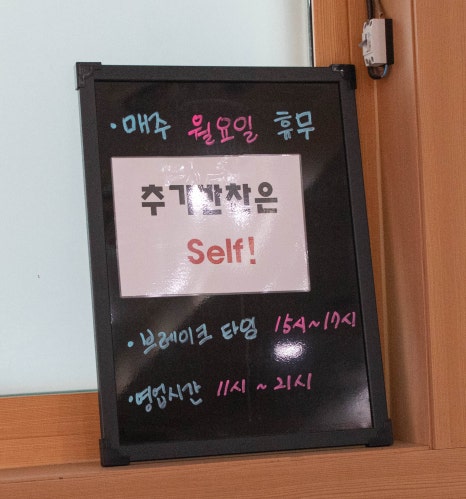 · 매주 월요일 휴무
추가반찬은
Self!
· 브레이크 타임 15시~17시
· 영업시간 11시 ~ 21시